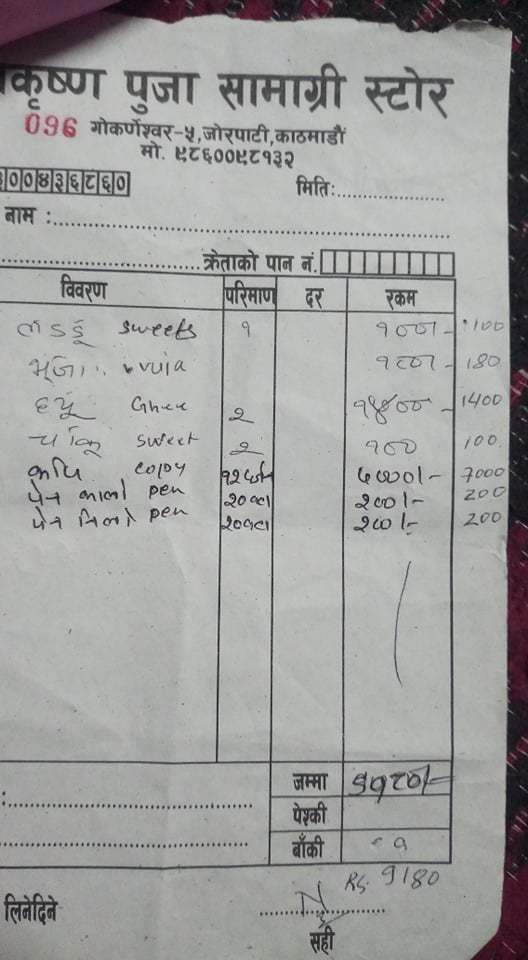 कृष्ण पुजा सामाग्री स्टोर
096 गोकर्णेश्वर-५,जोरपाटी,काठमाडौं
मो. ९८६००९८१३२
३००४३६८६० मिति:
नाम :
क्रेताको पान नं.
विवरण परिमाण दर रकम
लड्डू sweets १ १००- 100
भूजा १८०- 180
घ्यू Ghee २ १४००- 1400
sweet २ १०० 100.
कपि copy ७०००/- 7000
पेन कालो pen २०वटा २००/- 200
पेन निलो pen २०वटा २००/- 200
जम्मा ९१८०/-
पेश्की
बाँकी
Rs. 9180
लिनेदिने
सही